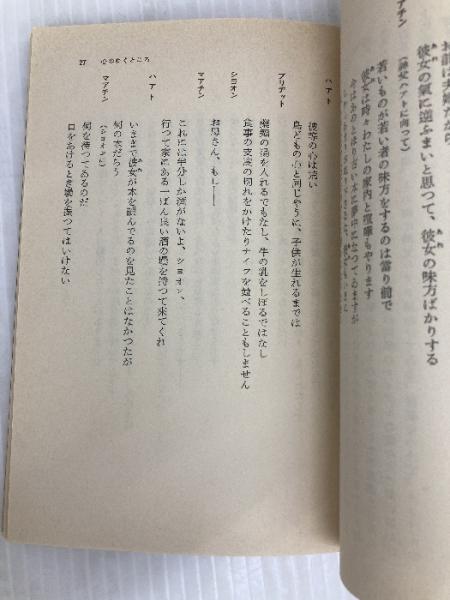 マアチン
お前は夫婦だから
彼女の氣に逆ふまいと思つて、彼女の味方ばかりする
(神父ハアトに向つて)
若いものが若い者の味方をするのは當り前で
彼女は時々わたしの家内と喧嘩もやります
今はあのとほり古い本に夢中になつてゐますが
27 心のゆくところ
ハアト
彼等の心は荒い
鳥どもの心と同じやうに、子供が生れるまでは
ブリヂット
藥罐の湯を入れるでもなし、牛の乳をしぼるではなし
食事の支度の切れをかけたりナイフを竝べることもしません
シヨオン
お母さん、もし――
マアチン
これには半分しか酒がないよ、シヨオン、
行つて家にある一ばん良い酒の罎を持つて来てくれ
ハアト
いままで彼女が本を讀んでゐるのを見たことはなかつたが
何の本だらう
マアチン
(シヨオンに)
何を待つてゐるのだ
口をあけるとき罎を振つてはいけない